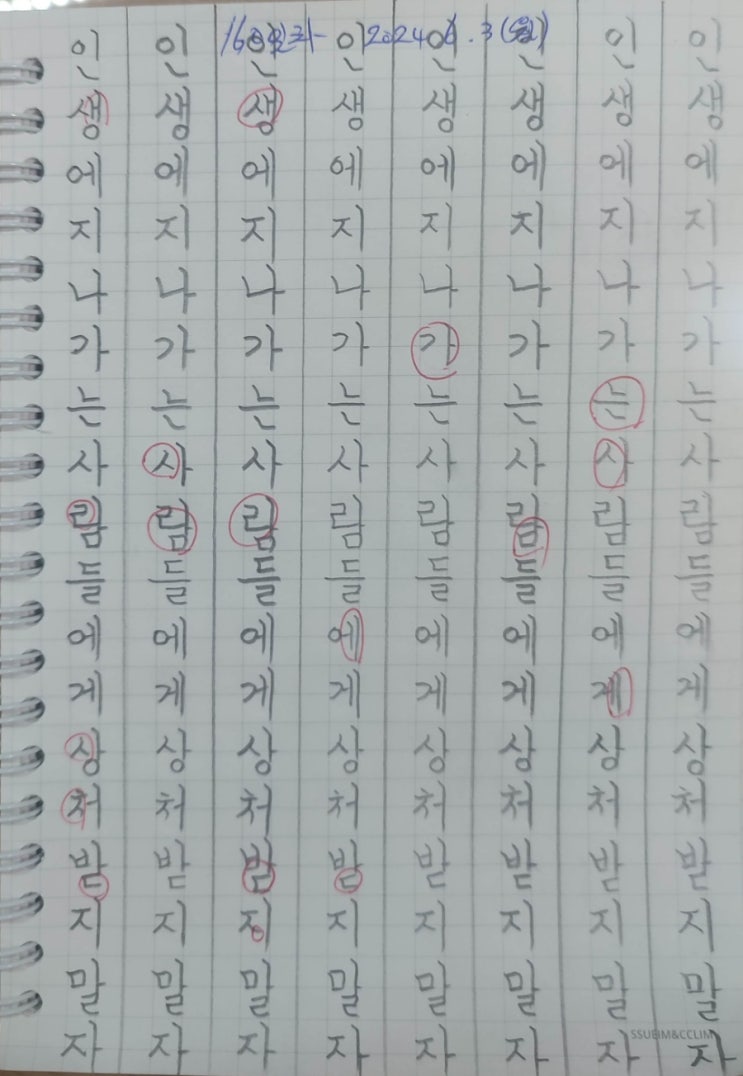 2024. 6. 3 (월)
인생에지나가는사람들에게상처받지말자
인생에지나가는사람들에게상처받지말자
인생에지나가는사람들에게상처받지말자
인생에지나가는사람들에게상처받지말자
인생에지나가는사람들에게상처받지말자
인생에지나가는사람들에게상처받지말자
인생에지나가는사람들에게상처받지말자
인생에지나가는사람들에게상처받지말자
SSUEIM&CCLIM